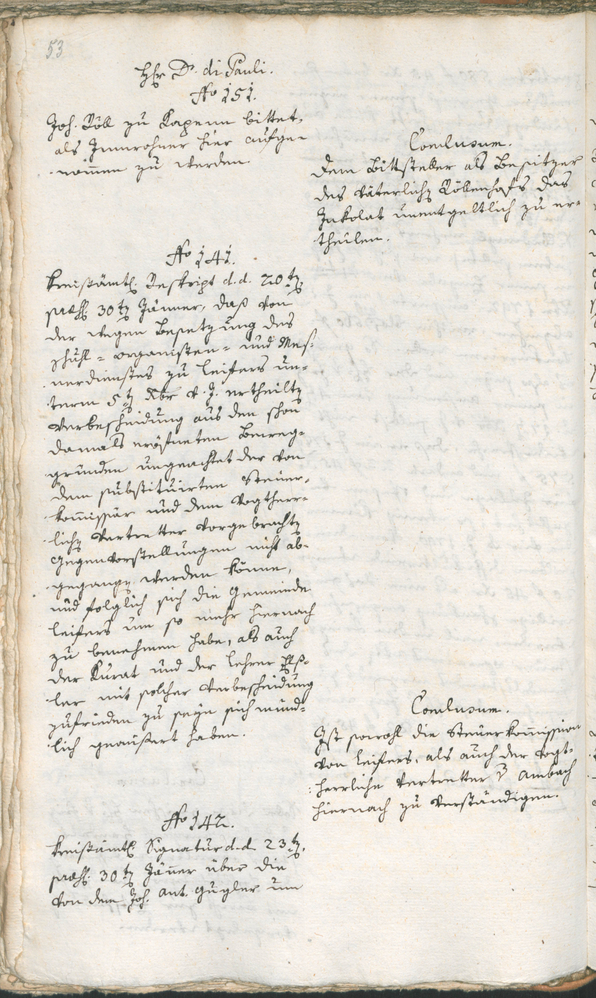 53
Hr. Dr. di Pauli.
No 151.
Joh. Röll zu Kapenn bittet,
als Innwohner hier aufge-
nommen zu werden.
Conclusum.
Dem Bittsteller als Besitzer
des väterlichen Röllenhofs das
Inkolat unentgeltlich zu er-
theilen.
No 141.
Kreisämtl. Reskript d. d. 20ten
praes. 30ten Jänner, daß von
der wegen Besetzung des
Schull- organisten- und Meß-
nerdienstes zu Leifers un-
term 5ten Xbr v. J. ertheilten
Verbescheidung aus den schon
damals eröfneten Beweg-
gründen ungeachtet der von
dem substituirten Steuer-
kommissär und dem Vogtherr-
lichen Vertretter vorgebrachten
Gegenvorstellungen nicht ab-
gegangen werden könne,
und folglich sich die Gemeinde
Leifers um so mehr hiernach
zu benehmen habe, als auch
der Kurat und der Lehrer
mit solcher Verbescheidung
zufrieden zu seyn sich münd-
lich geäussert haben.
Conclusum.
Ist sowohl die Steuerkommission
von Leifers, als auch der Vogt-
herrliche Vertretter v Ambach
hiernach zu verständigen.
No 142.
Kreisämtl. Signatur d. d. 23ten,
praes. 30ten Jänner über die
von dem Joh. Ant. Gugler um